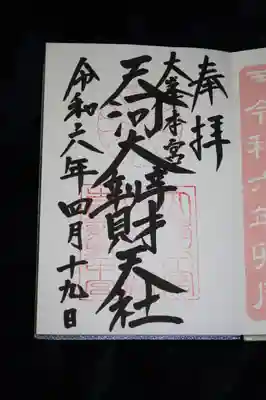 奉拝
大峯本宮
天河大辨財天社
令和六年四月十九日